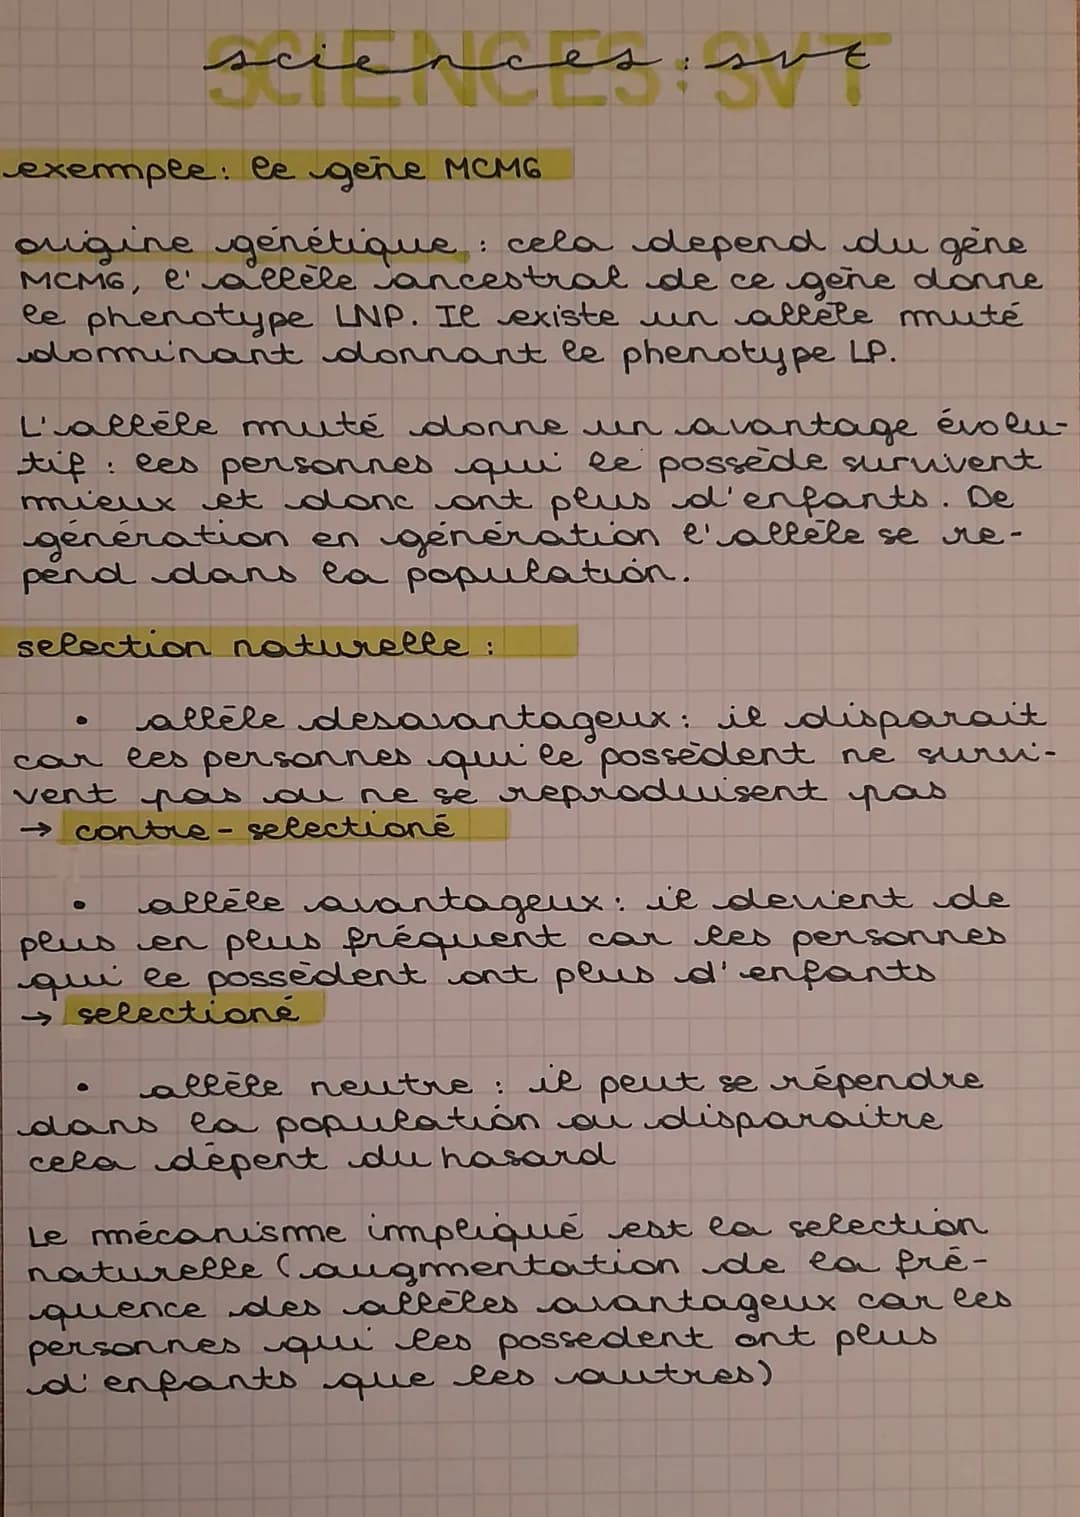 SCIENCES: SVT
sciences: svt
exemple: le gène MCM6
origine génétique : cela depend du gène
MCM6, l'allèle ancestral de ce gène donne
le phenotype LNP. Il existe un allèle muté
dominant donnant le phenotype LP.
L'allèle muté donne un avantage évolu-
tif : les personnes qui le possède survivent
mieux et donc ont plus d'enfants. De
génération en génération l'allèle se re-
pend dans la population.
selection naturelle :
• allèle desavantageux : il disparait
car les personnes qui le possèdent ne survi-
vent pas ou ne se reproduisent pas
→ contre-selectioné
• allèle avantageux : il devient de
plus en plus fréquent car les personnes
qui le possèdent ont plus d'enfants
→ selectioné
• allèle neutre : il peut se répendre
dans la population ou disparaitre
cela dépent du hasard
Le mécanisme impliqué est la selection
naturelle (augmentation de la fré-
quence des allèles avantageux car les
personnes qui les possedent ont plus
d'enfants que les autres)